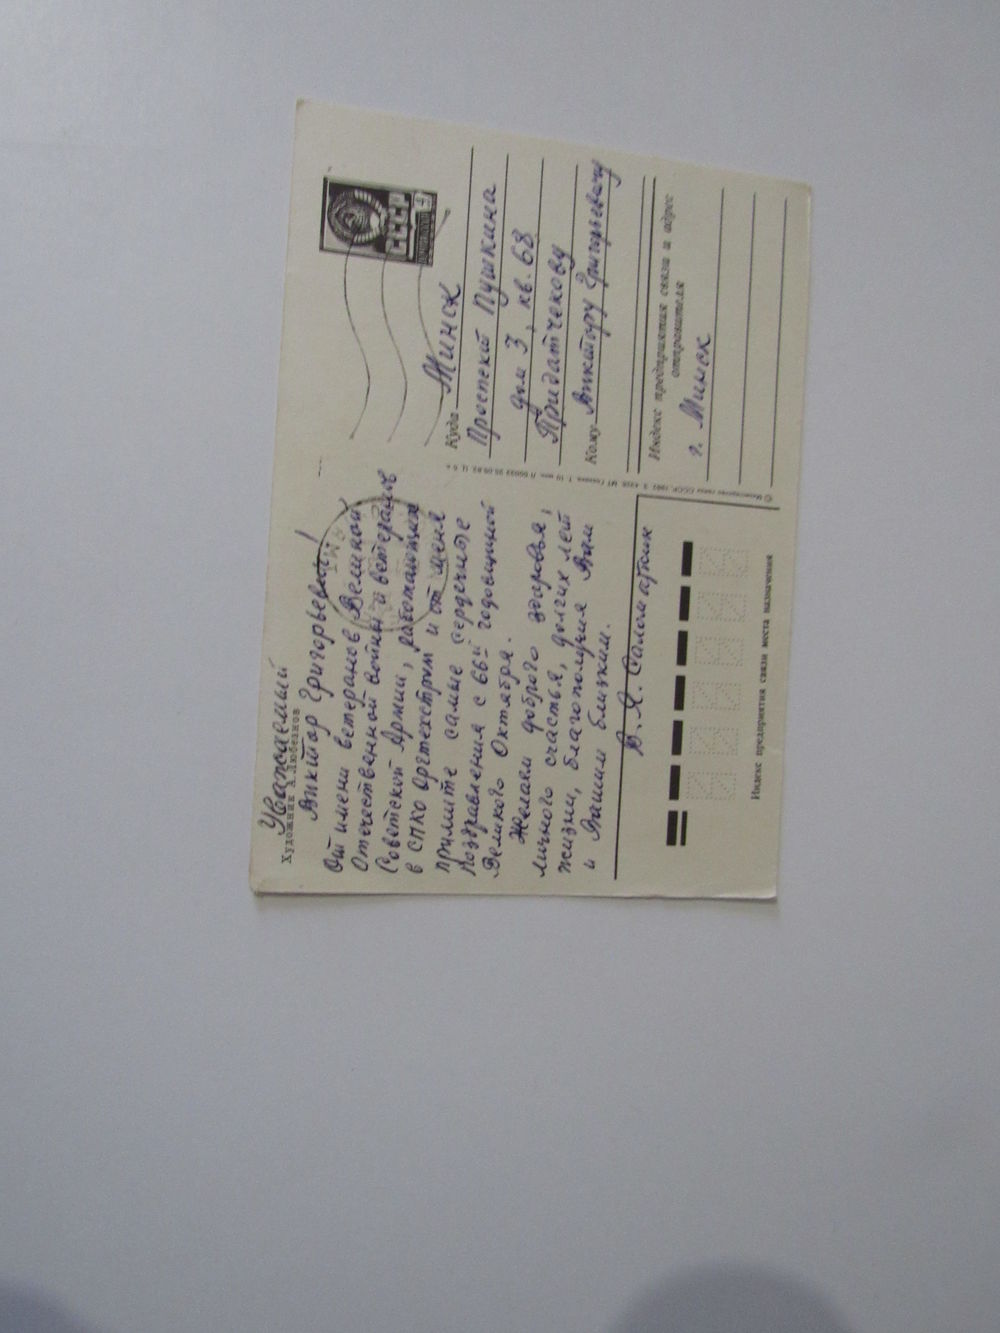 Уважаемый
Художник А. Любезнов
Виктор Григорьевич!
От имени ветеранов Великой
Отечественной войны и ветеранов
Советской Армии, работающих
в СПКО Оргтехстром и от меня
примите самые сердечные
поздравления с 66й годовщиной
Великого Октября.
Желаем доброго здоровья,
личного счастья, долгих лет
жизни, благополучия Вам
и Вашим близким.
В. Я.
Индекс предприятия связи места назначения
СССР
4
Куда Минск
Проспект Пушкина
дом 3, кв. 68
Кому Придатчекову
Виктору Григорьевичу
Индекс предприятия связи и адрес
отправителя
г. Минск
© Министерство связи СССР, 1983